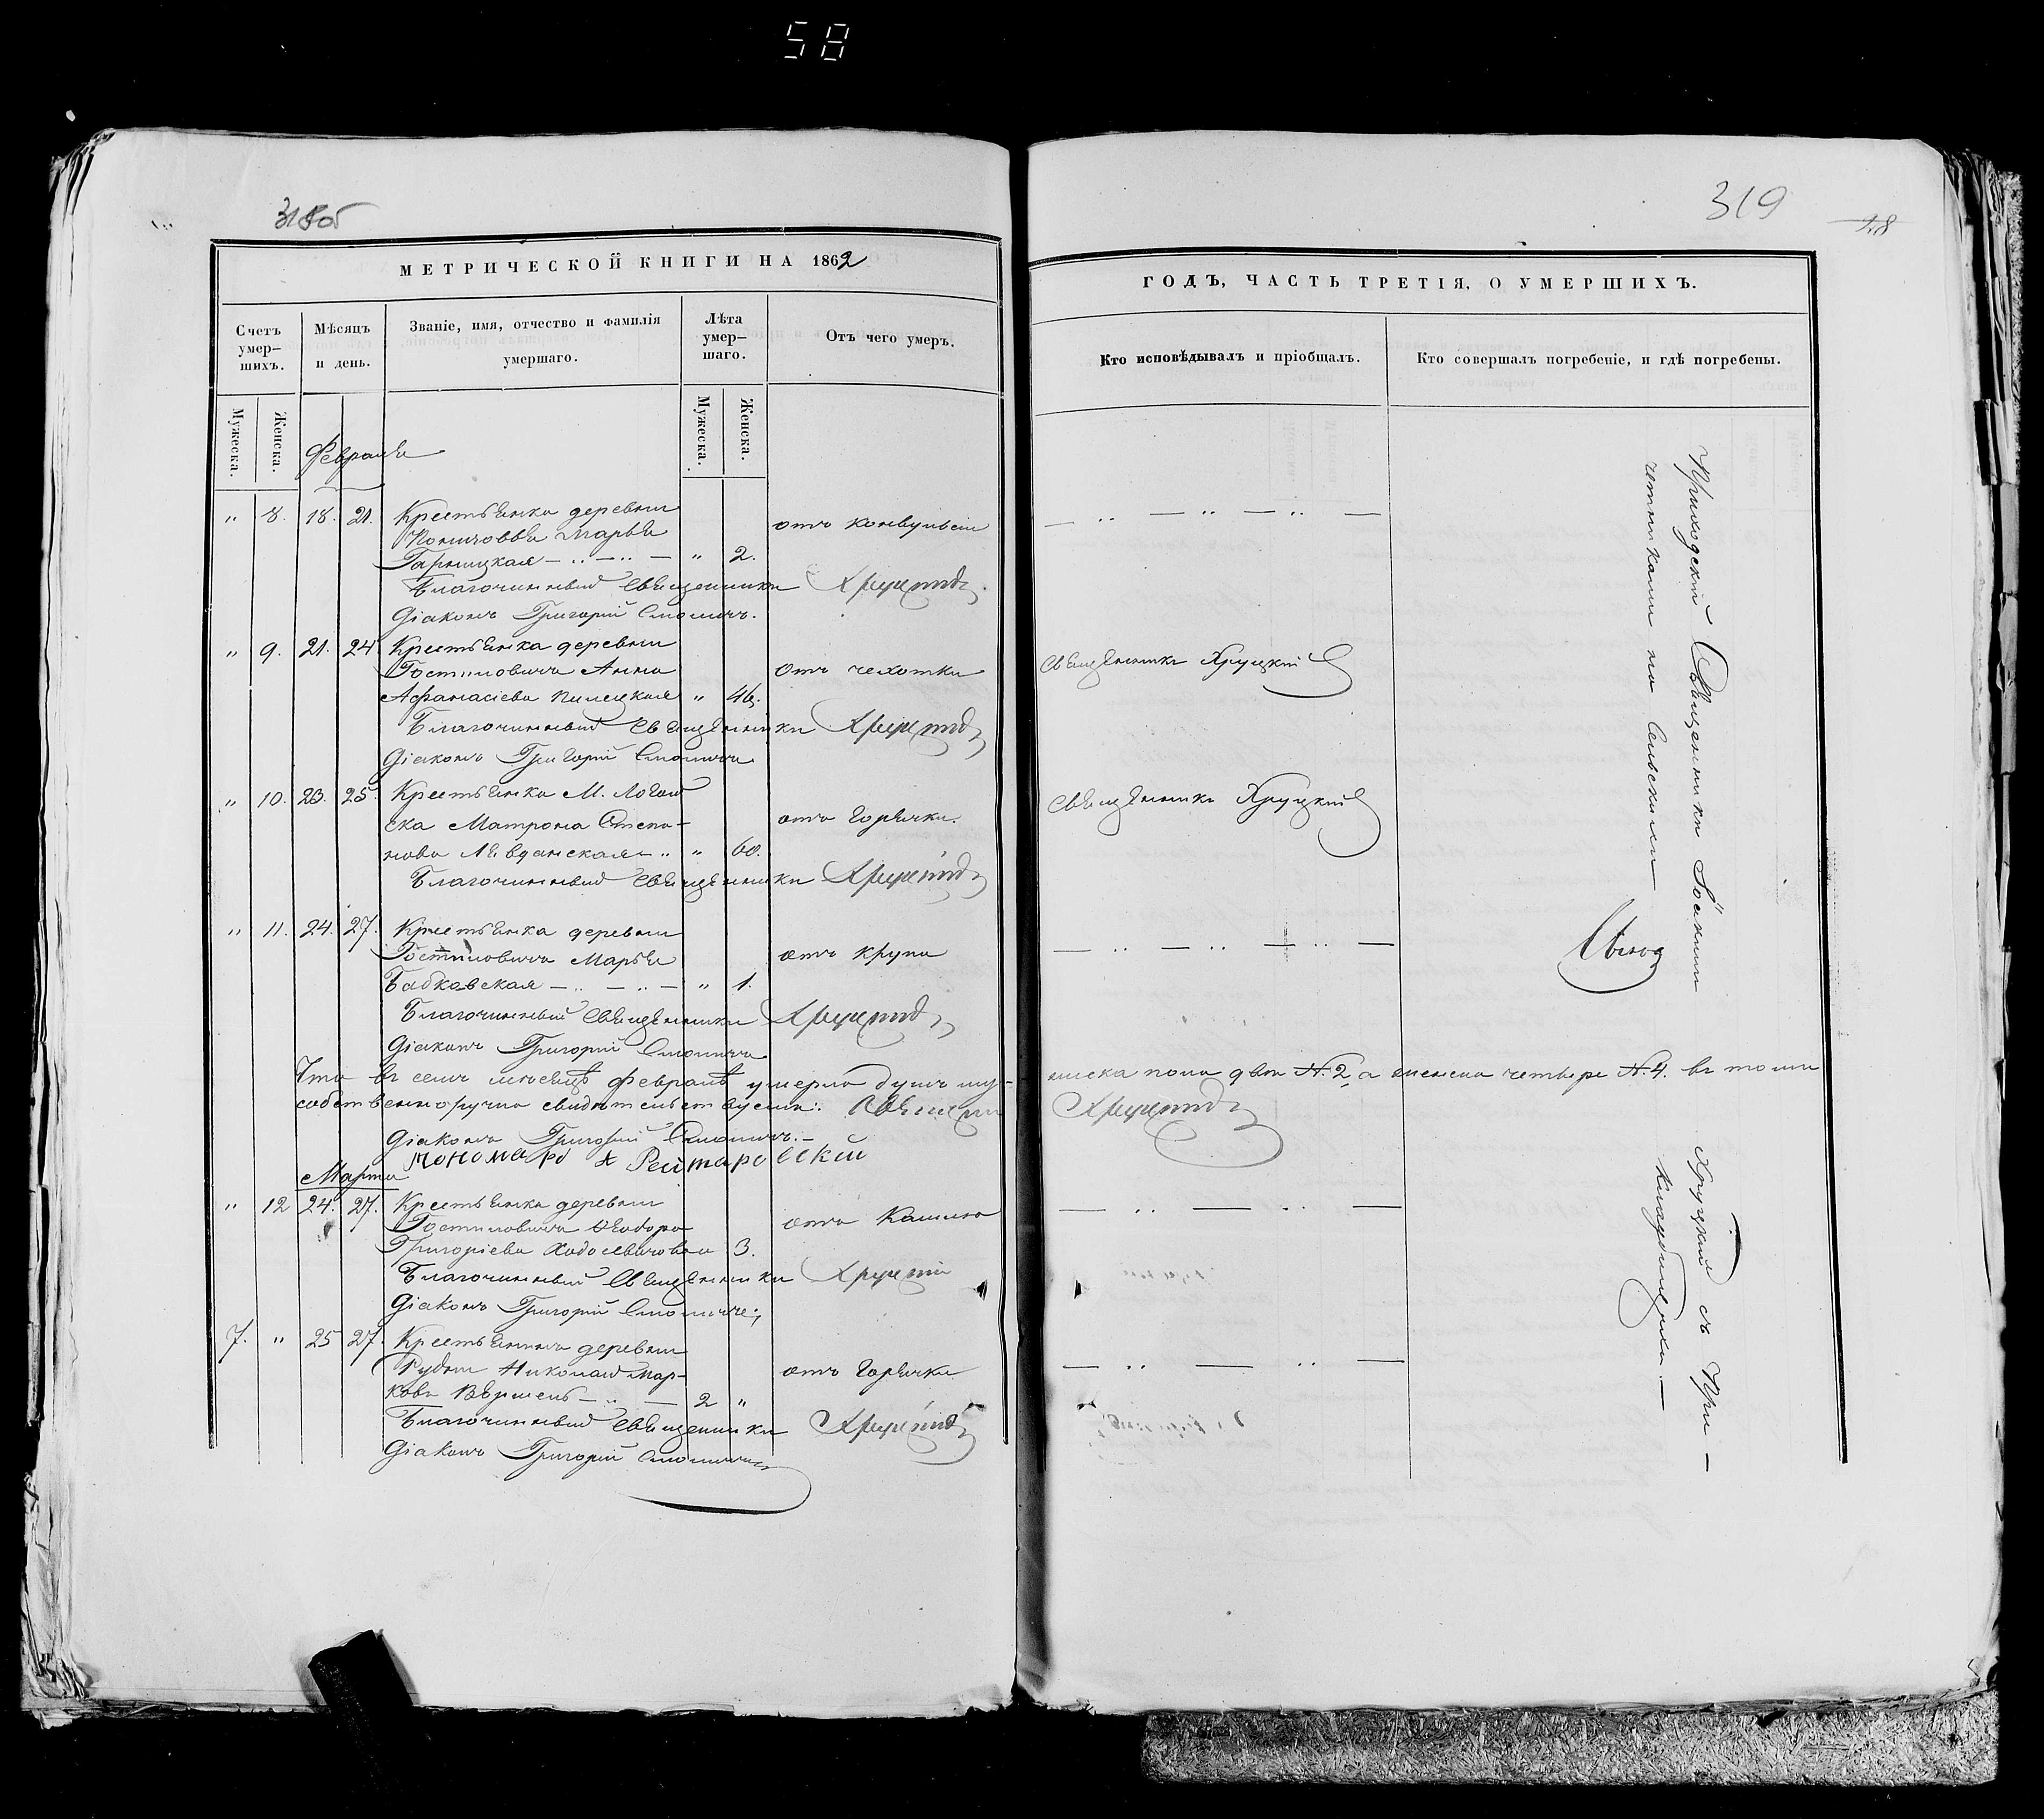 58
318об
319
28
МЕТРИЧЕСКОЙ КНИГИ НА 1862
ГОДЪ, ЧАСТЬ ТРЕТІЯ, О УМЕРШИХЪ.
Счетъ умер-шихъ.
Мѣсяцъ и день.
Званіе, имя, отчество и фамилія умершаго.
Лѣта умер-шаго.
Отъ чего умеръ.
Кто исповѣдывалъ и пріобщалъ.
Кто совершалъ погребеніе, и гдѣ погребены.
Мужеска.
Женска.
Мужеска.
Женска.
Февраля
" 8. 18. 21. Крестьянка деревни
Марья отъ конвульсіи
Гарницкая — " — " — " 2.
Благочинный Священникъ Хруцкій
Діаконъ Григорій Смоличъ.
" 9. 21. 24. Крестьянка деревни
Гостиловичъ Анна отъ чехотки Священникъ Хруцкій
Афанасіева Пилецкая " 46.
Благочинный Священникъ Хруцкій
Діаконъ Григорій Смоличъ
" 10. 23. 25. Крестьянка М. Логой
ска Матрона Степа- отъ горячки. Священникъ Хруцкій
нова " " 60.
Благочинный Священникъ Хруцкій
" 11. 24. 27. Крестьянка деревни
Гостиловичъ Марья отъ крупа
Бабкавская — " — " — " 1.
Благочинный Священникъ Хруцкій
Діаконъ Григорій Смоличъ
Что въ семъ месяцѣ февралѣ умерло душъ му-жеска пола два №. 2, а женска четыре №. 4. въ томъ
собственноручно свидѣтельствуемъ: Священ Хруцкій
Діаконъ Григорій Смоличъ. —
пономарь А Рейтаровскій
Марта
" 12 24. 27. Крестьянка деревни
Гостиловичъ Ѳеодора отъ кашлю
Григоріева Ходосевичова 3.
Благочинный Священникъ Хруцкій
Діаконъ Григорій Смоличъ
7. " 25 27. Крестьянинъ деревни
Рудни Николай Мар- отъ горячки
ковъ — " — 2 "
Благочинный Священникъ Хруцкій
Діаконъ Григорій Смоличъ
Приходскій Священникъ Іоаннъ Хруцкій съ При-
четниками на Сельскомъ кладбищѣ. —